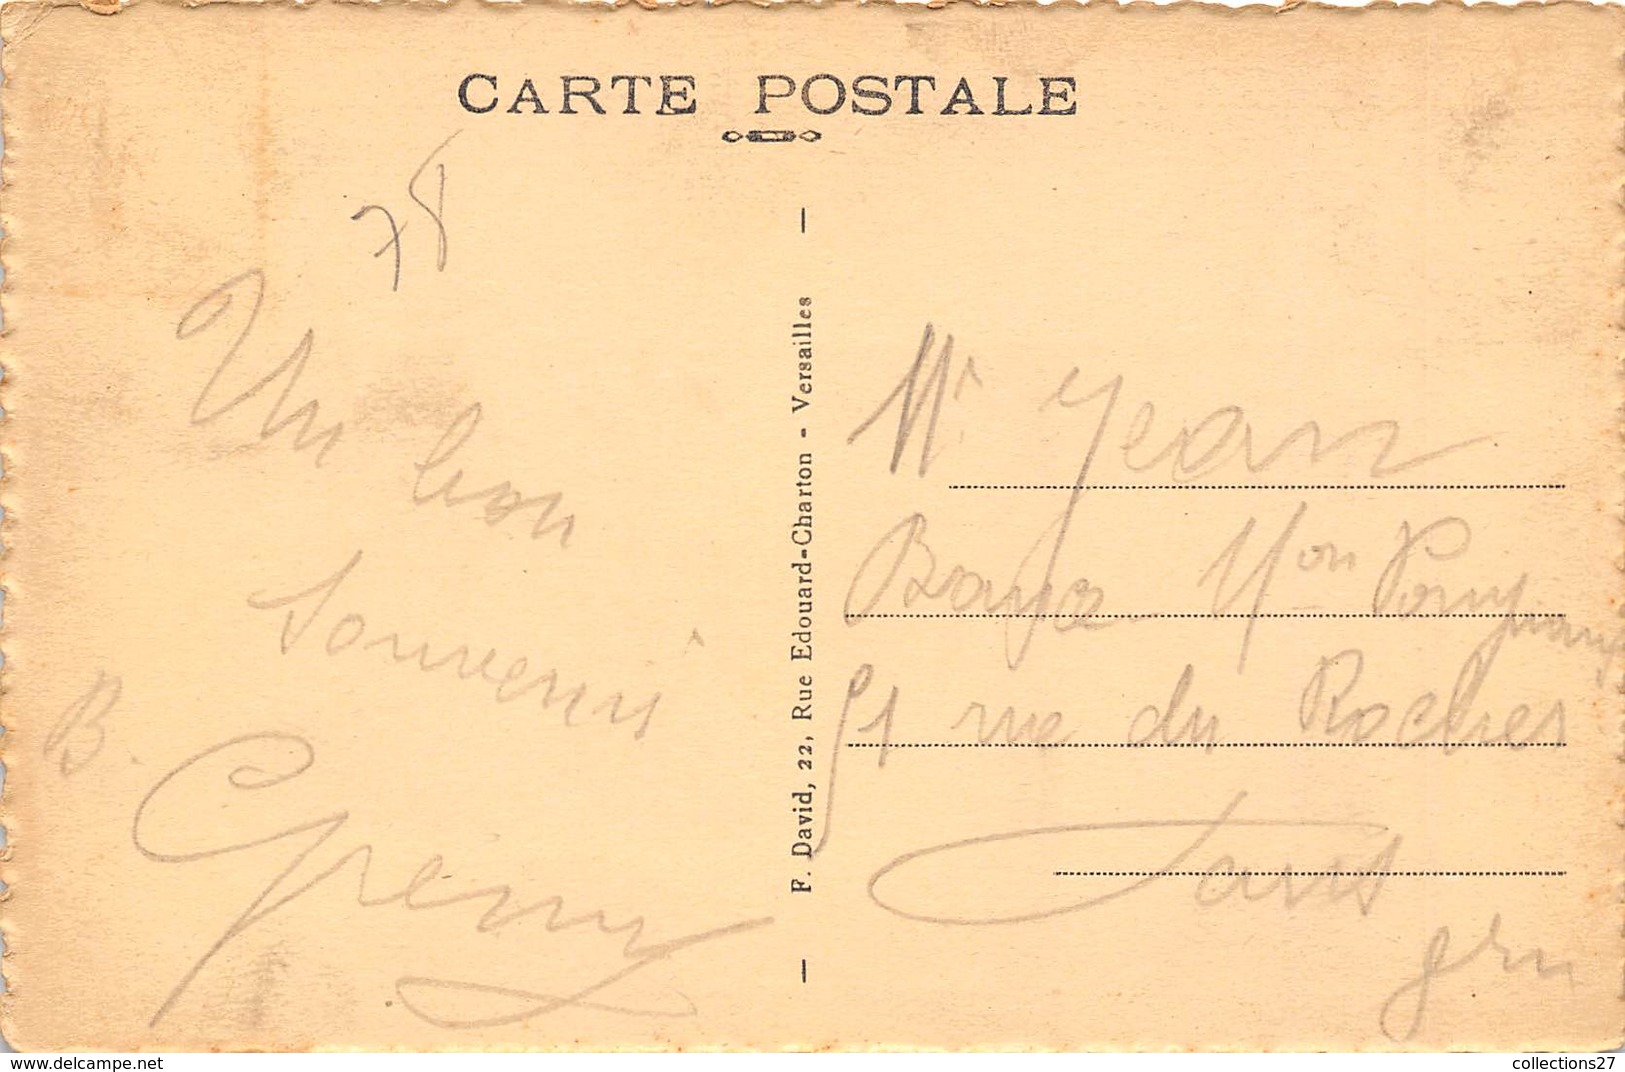 CARTE POSTALE
78
Un bon
Souvenir
B. Grémy
F. David, 22, Rue Edouard-Charton - Versailles
Mr Jean
51 rue du Rocher
Paris
delcampe.net
collections27